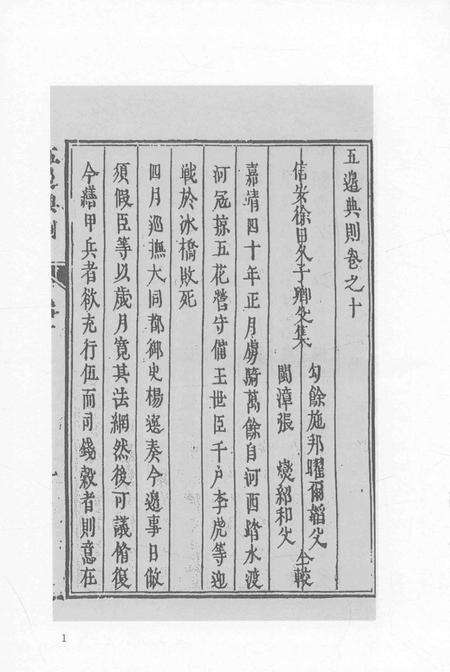 五邊典則卷之十
信安徐日久子卿父集
勾餘施邦曜爾韜父
閩漳張 燮紹和父 仝較
嘉靖四十年正月虜騎萬餘自河西踏氷渡
河冦掠五花營守備王世臣千户李虎等迎
戰於冰橋敗死
四月巡撫大同都御史楊選奏今邊事日僘
須假臣等以歲月寛其法網然後可議脩復
今繕甲兵者欲充行伍而司錢穀者則意在
五邊典則
卷十
1